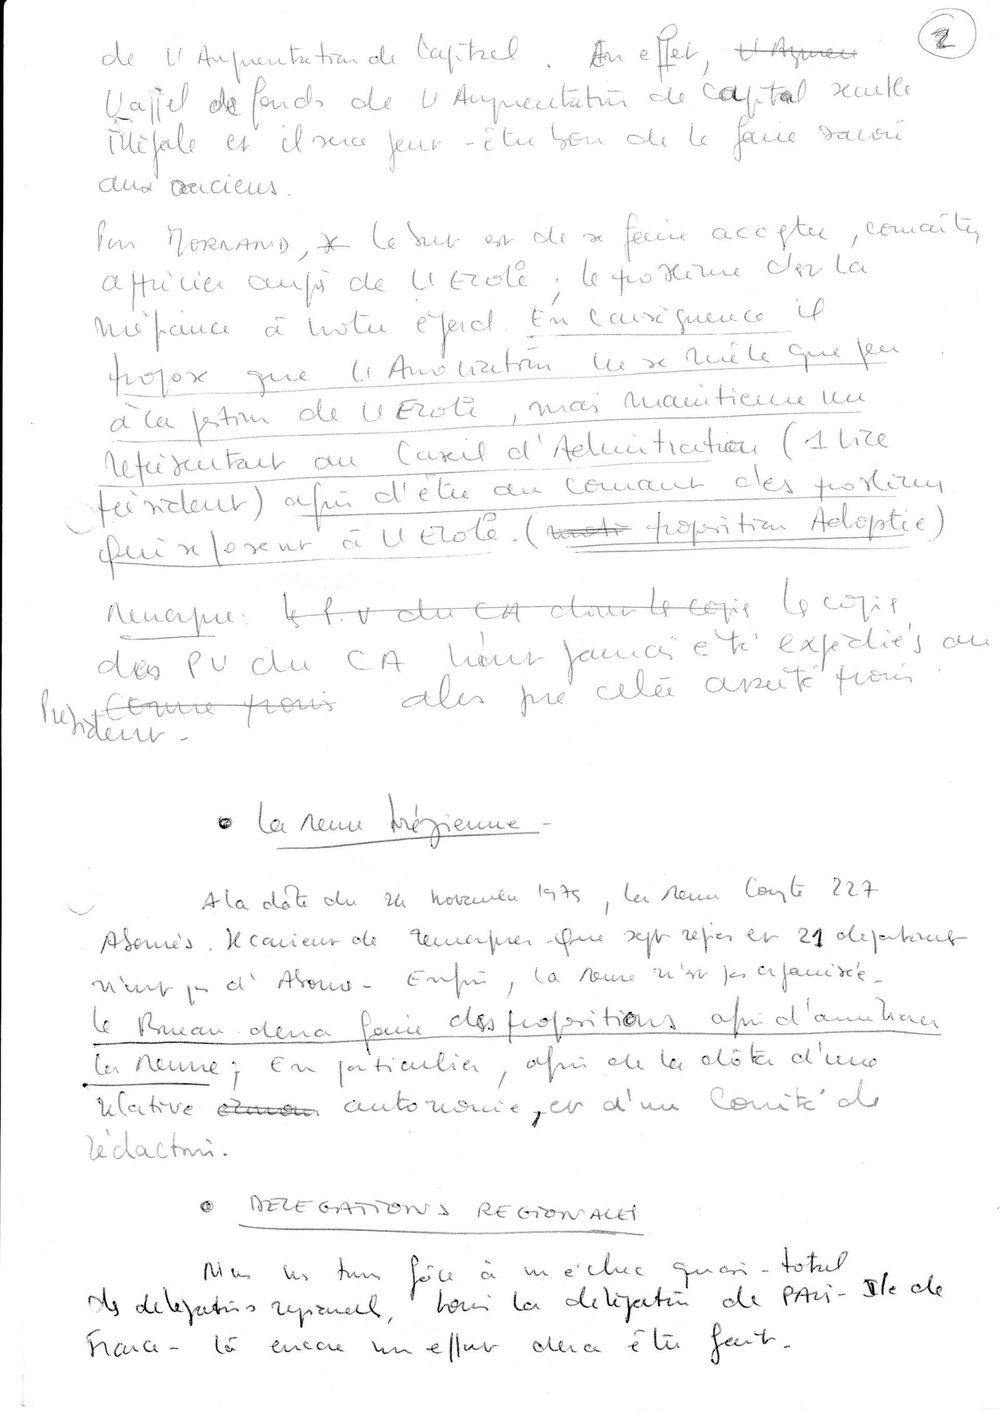 2
de l'Augmentation de Capital. En effet, l'Augmen
L'appel de fonds de l'Augmentation de Capital semble
illégale et il sera peut-être bon de le faire savoir
aux anciens.
Pour MORNAND, le but est de se faire accepter, connaître,
apprécier auprès de l'Ecole ; le problème est la
méfiance à notre égard. En Conséquence il
propose que l'Association ne se mêle que peu
à la gestion de l'Ecole, mais maintienne un
représentant au Conseil d'Administration (1 Vice
Président) afin d'être au courant des problèmes
qui se posent à l'Ecole. (proposition Adoptée)
Remarque : le P.V du CA dont le copie le copie
des PV du CA n'ont jamais été expédiés au
Président - comme promis alors que cela avait été promis
• La revue trézienne -
A la date du 24 novembre 1975, la revue Compte 227
Abonnés. Il convient de remarquer que sept régions et 21 départements
n'ont pas d'Abonnés - Enfin, la revue n'est pas organisée -
le Bureau devra faire des propositions afin d'améliorer
la Revue ; En particulier, afin de la dôter d'une
relative autonomie, et d'un Comité de
rédaction.
• DELEGATIONS REGIONALES
Nous face à un échec quasi-total
des délégations régionales, hormis la délégation de PARIS-Ile de
France - là encore un effort devra être fait.